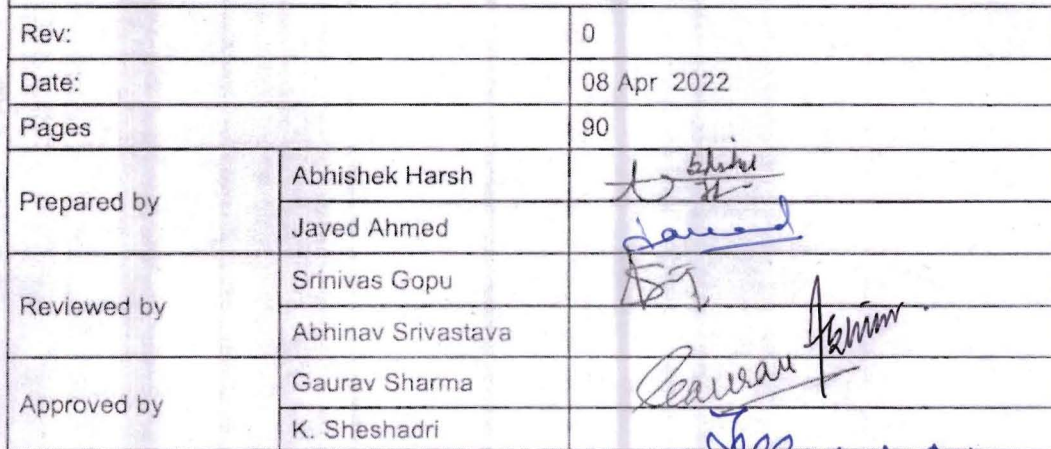 Rev: 0
Date: 08 Apr 2022
Pages 90
Prepared by
Abhishek Harsh
Javed Ahmed
Reviewed by
Srinivas Gopu
Abhinav Srivastava
Approved by
Gaurav Sharma
Gaurav
K. Sheshadri